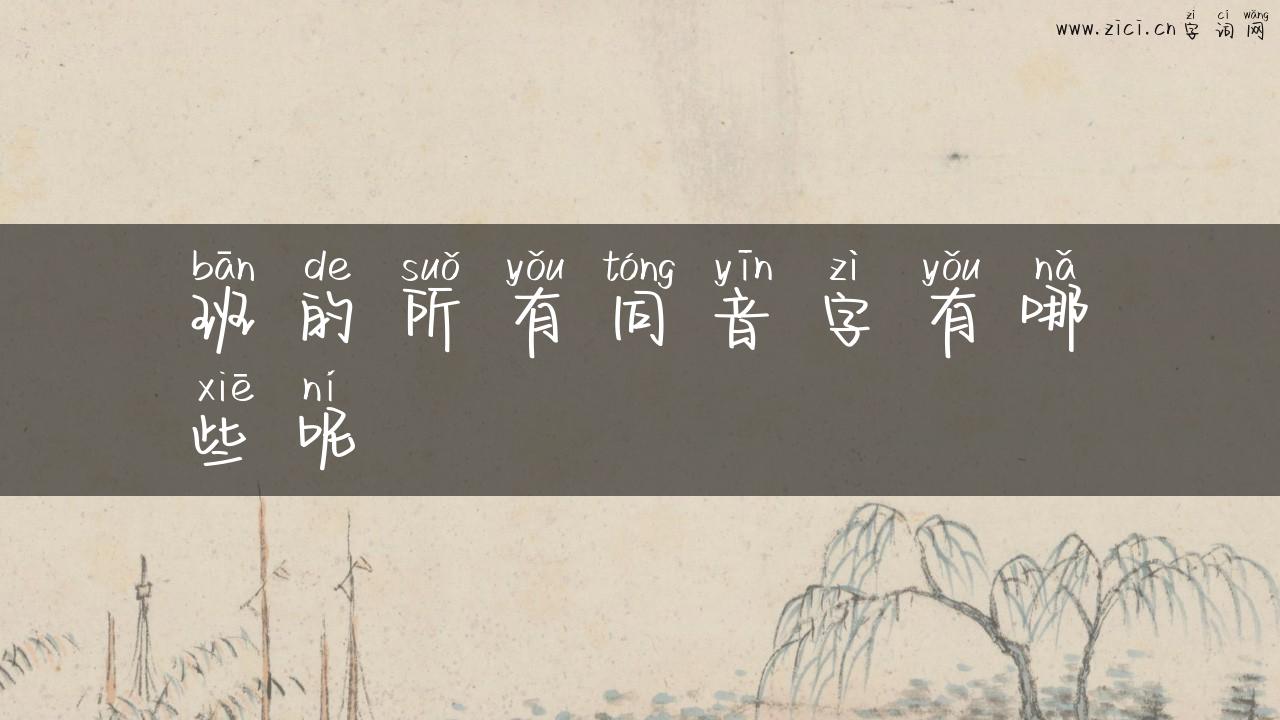 zì cí wǎng
www.zici.cn 字词网
bān de suǒ yǒu tóng yīn zì yǒu nǎ
班的所有同音字有哪
xiē ní
些呢